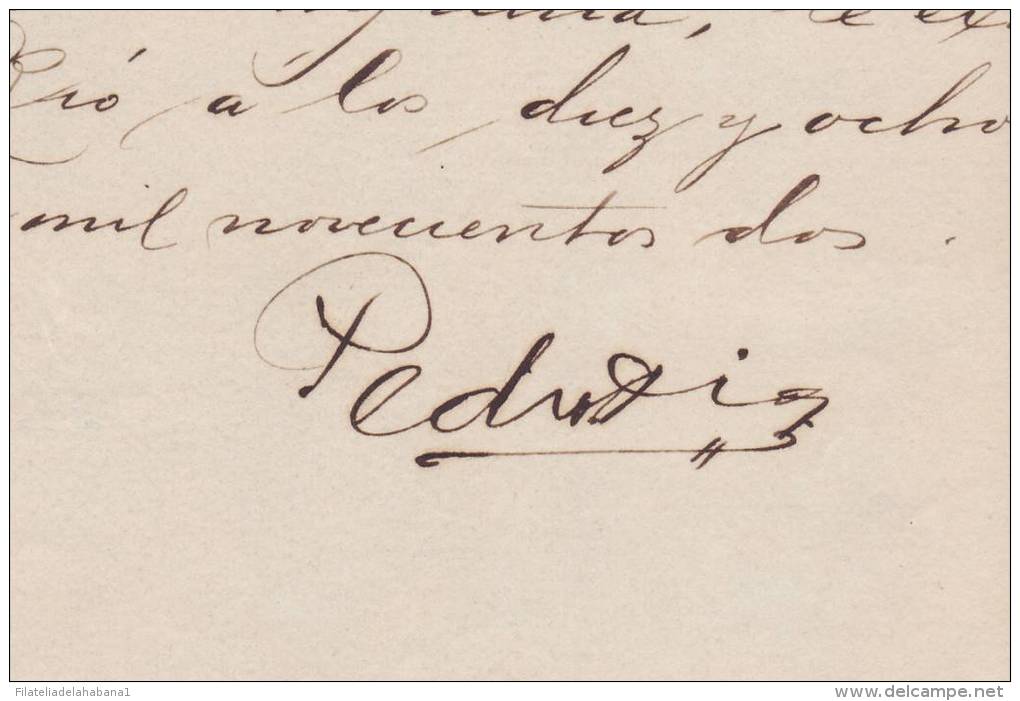 Rió á los diez y ocho
mil novecientos dos.
Pedro Diaz
Filateliadelahabana1
www.delcampe.net